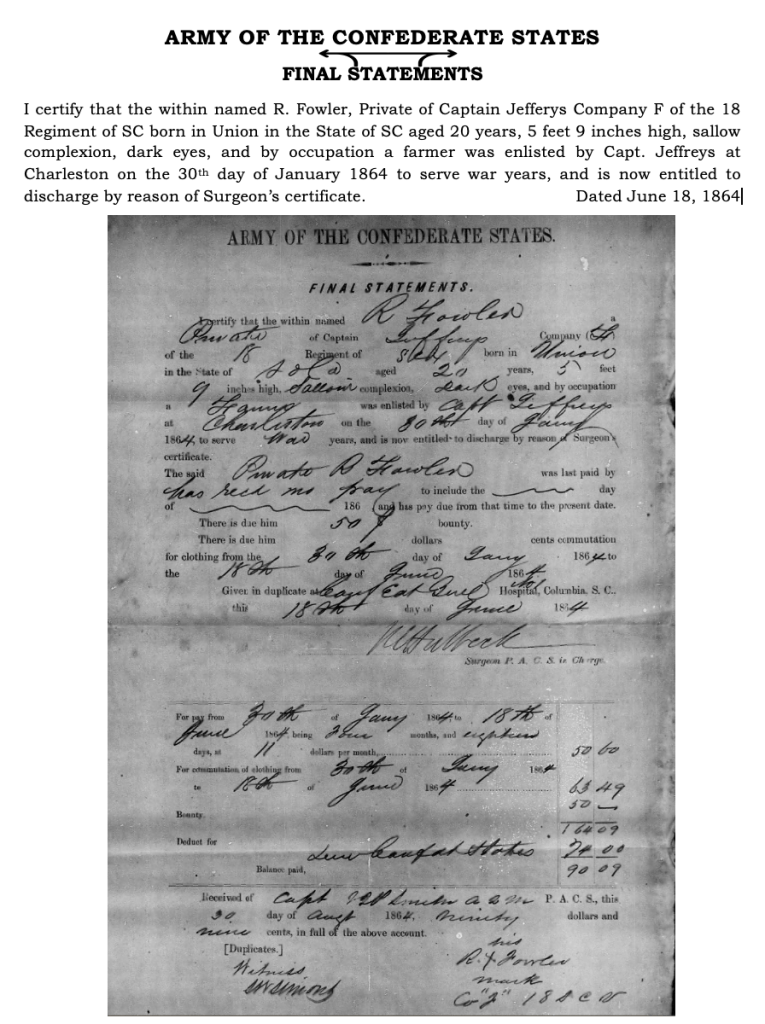 ARMY OF THE CONFEDERATE STATES
FINAL STATEMENTS
I certify that the within named R. Fowler, Private of Captain Jefferys Company F of the 18
Regiment of SC born in Union in the State of SC aged 20 years, 5 feet 9 inches high, sallow
complexion, dark eyes, and by occupation a farmer was enlisted by Capt. Jeffreys at
Charleston on the 30th day of January 1864 to serve war years, and is now entitled to
discharge by reason of Surgeon's certificate. Dated June 18, 1864
ARMY OF THE CONFEDERATE STATES.
FINAL STATEMENTS.
I certify that the within named R Fowler a
Private of Captain Company
of the 18 Regiment of born in Union
in the State of aged 20 years, 5 feet
9 inches high, Sallow complexion, dark eyes, and by occupation
a was enlisted by Capt Jeffreys
at Charleston on the 30th day of Jany
1864, to serve War years, and is now entitled to discharge by reason of Surgeon's
certificate.
The said Private R Fowler was last paid by
has recd no pay to include the day
of 186 (and has pay due from that time to the present date.
There is due him 50 $ bounty.
There is due him dollars cents commutation
for clothing from the 30th day of Jany 1864 to
the 18th day of June 1864
Given in duplicate at Hospital, Columbia. S. C..
this 18th day of June 1864
Surgeon P. A. C. S. in Charge.
For pay from 30th of Jany 1864 to 18th of
June 1864 being Four months, and eighteen
days, at 11 dollars per month, 50 60
For commutation of clothing from 30th of Jany 1864
to 18th of June 1864 63 49
Bounty. 50 —
164 09
Deduct for due Confed States 74 00
Balance paid, 90 09
Received of Capt P. A. C. S., this
30 day of Augt 1864. Ninety dollars and
nine cents, in full of the above account.
[Duplicates.] his
Witness R. X Fowler
mark
Co 18 S C V